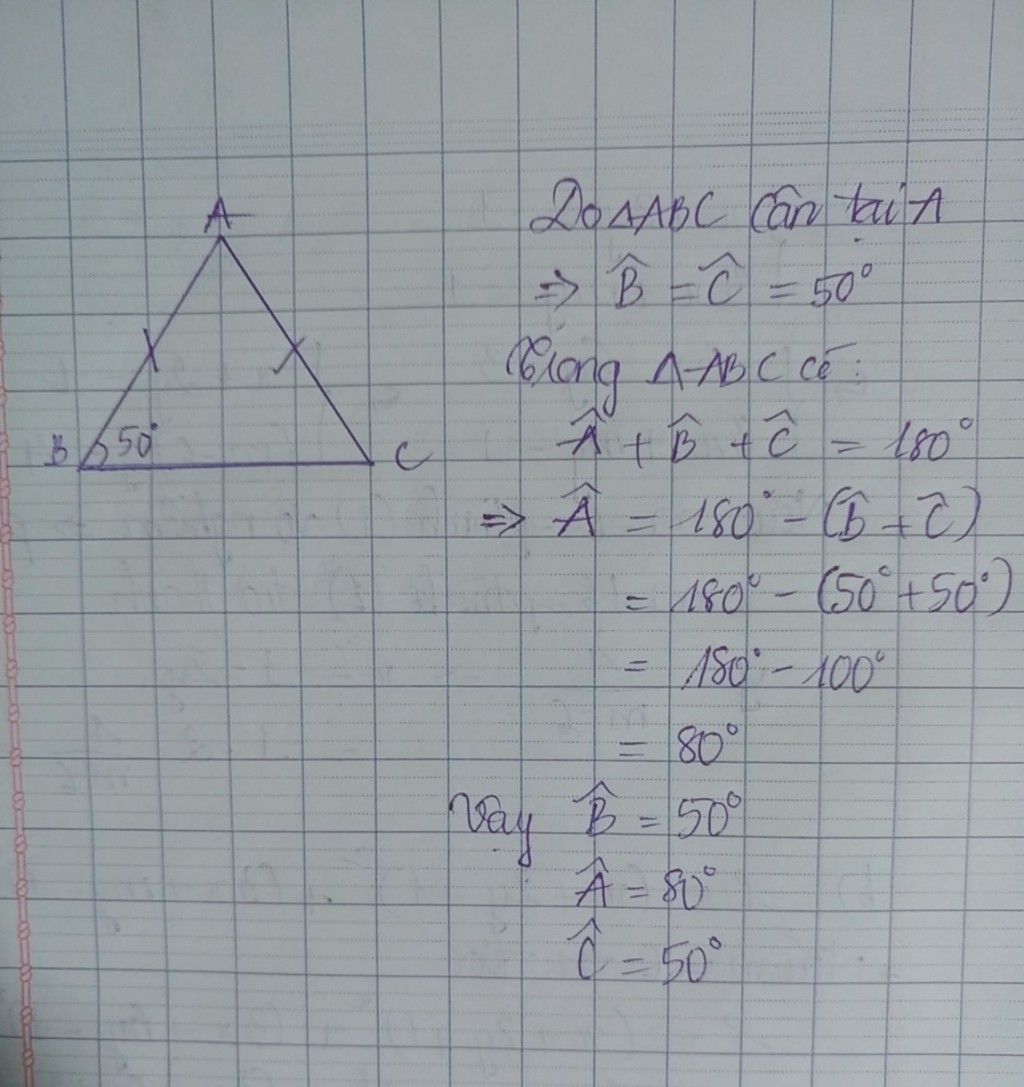 A
B 50° C
Do ΔABC cân tại A
=> B̂ = Ĉ = 50°
Trong ΔABC có:
Â + B̂ + Ĉ = 180°
=> Â = 180° - (B̂ + Ĉ)
= 180° - (50° + 50°)
= 180° - 100°
= 80°
Vậy B̂ = 50°
Â = 80°
Ĉ = 50°